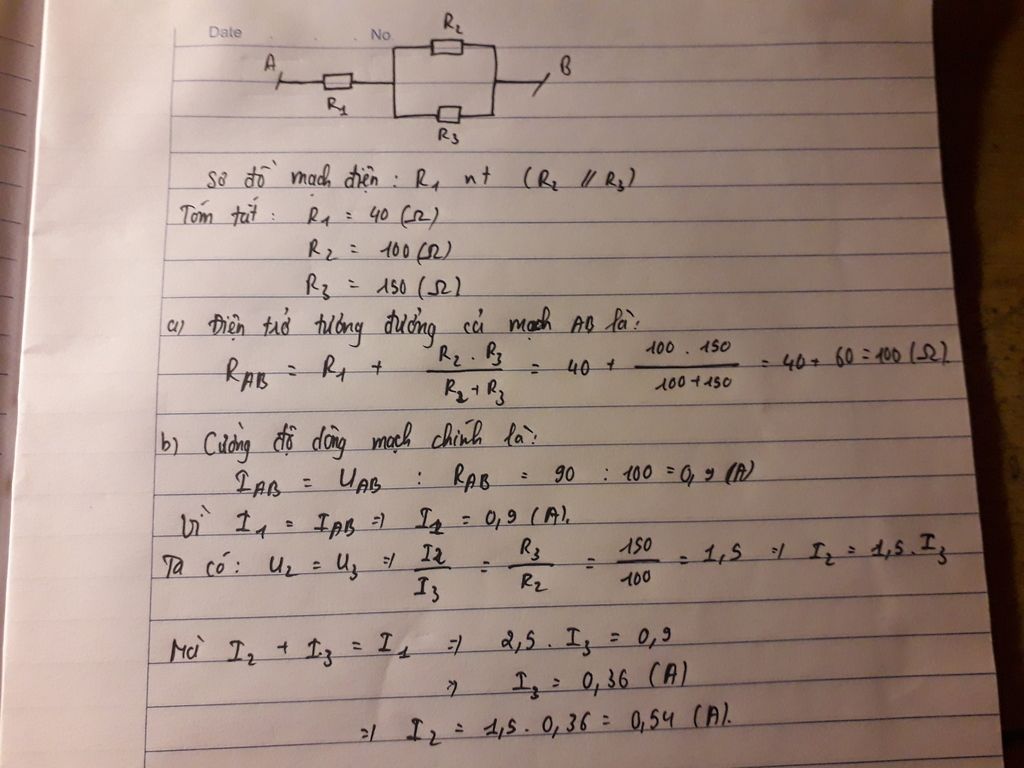 Date No
A R₁ R₂ R₃ B
Sơ đồ mạch điện : R₁ nt (R₂ // R₃)
Tóm tắt : R₁ = 40 (Ω)
R₂ = 100 (Ω)
R₃ = 150 (Ω)
a) Điện trở tương đương cả mạch AB là:
R_AB = R₁ + (R₂ . R₃)/(R₂ + R₃) = 40 + (100 . 150)/(100 + 150) = 40 + 60 = 100 (Ω)
b) Cường độ dòng mạch chính là:
I_AB = U_AB : R_AB = 90 : 100 = 0,9 (A)
Vì I₁ = I_AB => I₁ = 0,9 (A).
Ta có : U₂ = U₃ => I₂/I₃ = R₃/R₂ = 150/100 = 1,5 => I₂ = 1,5 . I₃
Mà I₂ + I₃ = I₁ => 2,5 . I₃ = 0,9
=> I₃ = 0,36 (A)
=> I₂ = 1,5 . 0,36 = 0,54 (A).